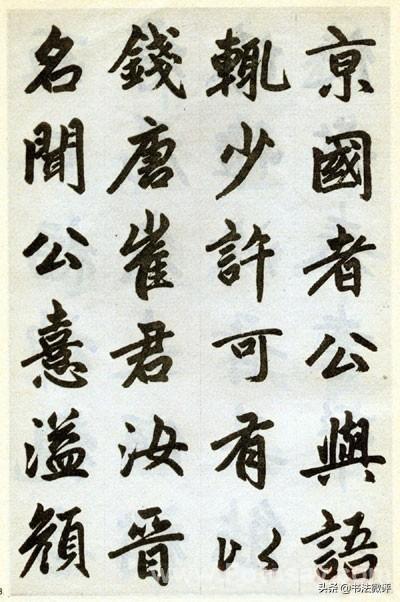 京國者公與語
輒少許可有以
錢唐崔君汝晉
名聞公憙溢顏
头条 @书法微评